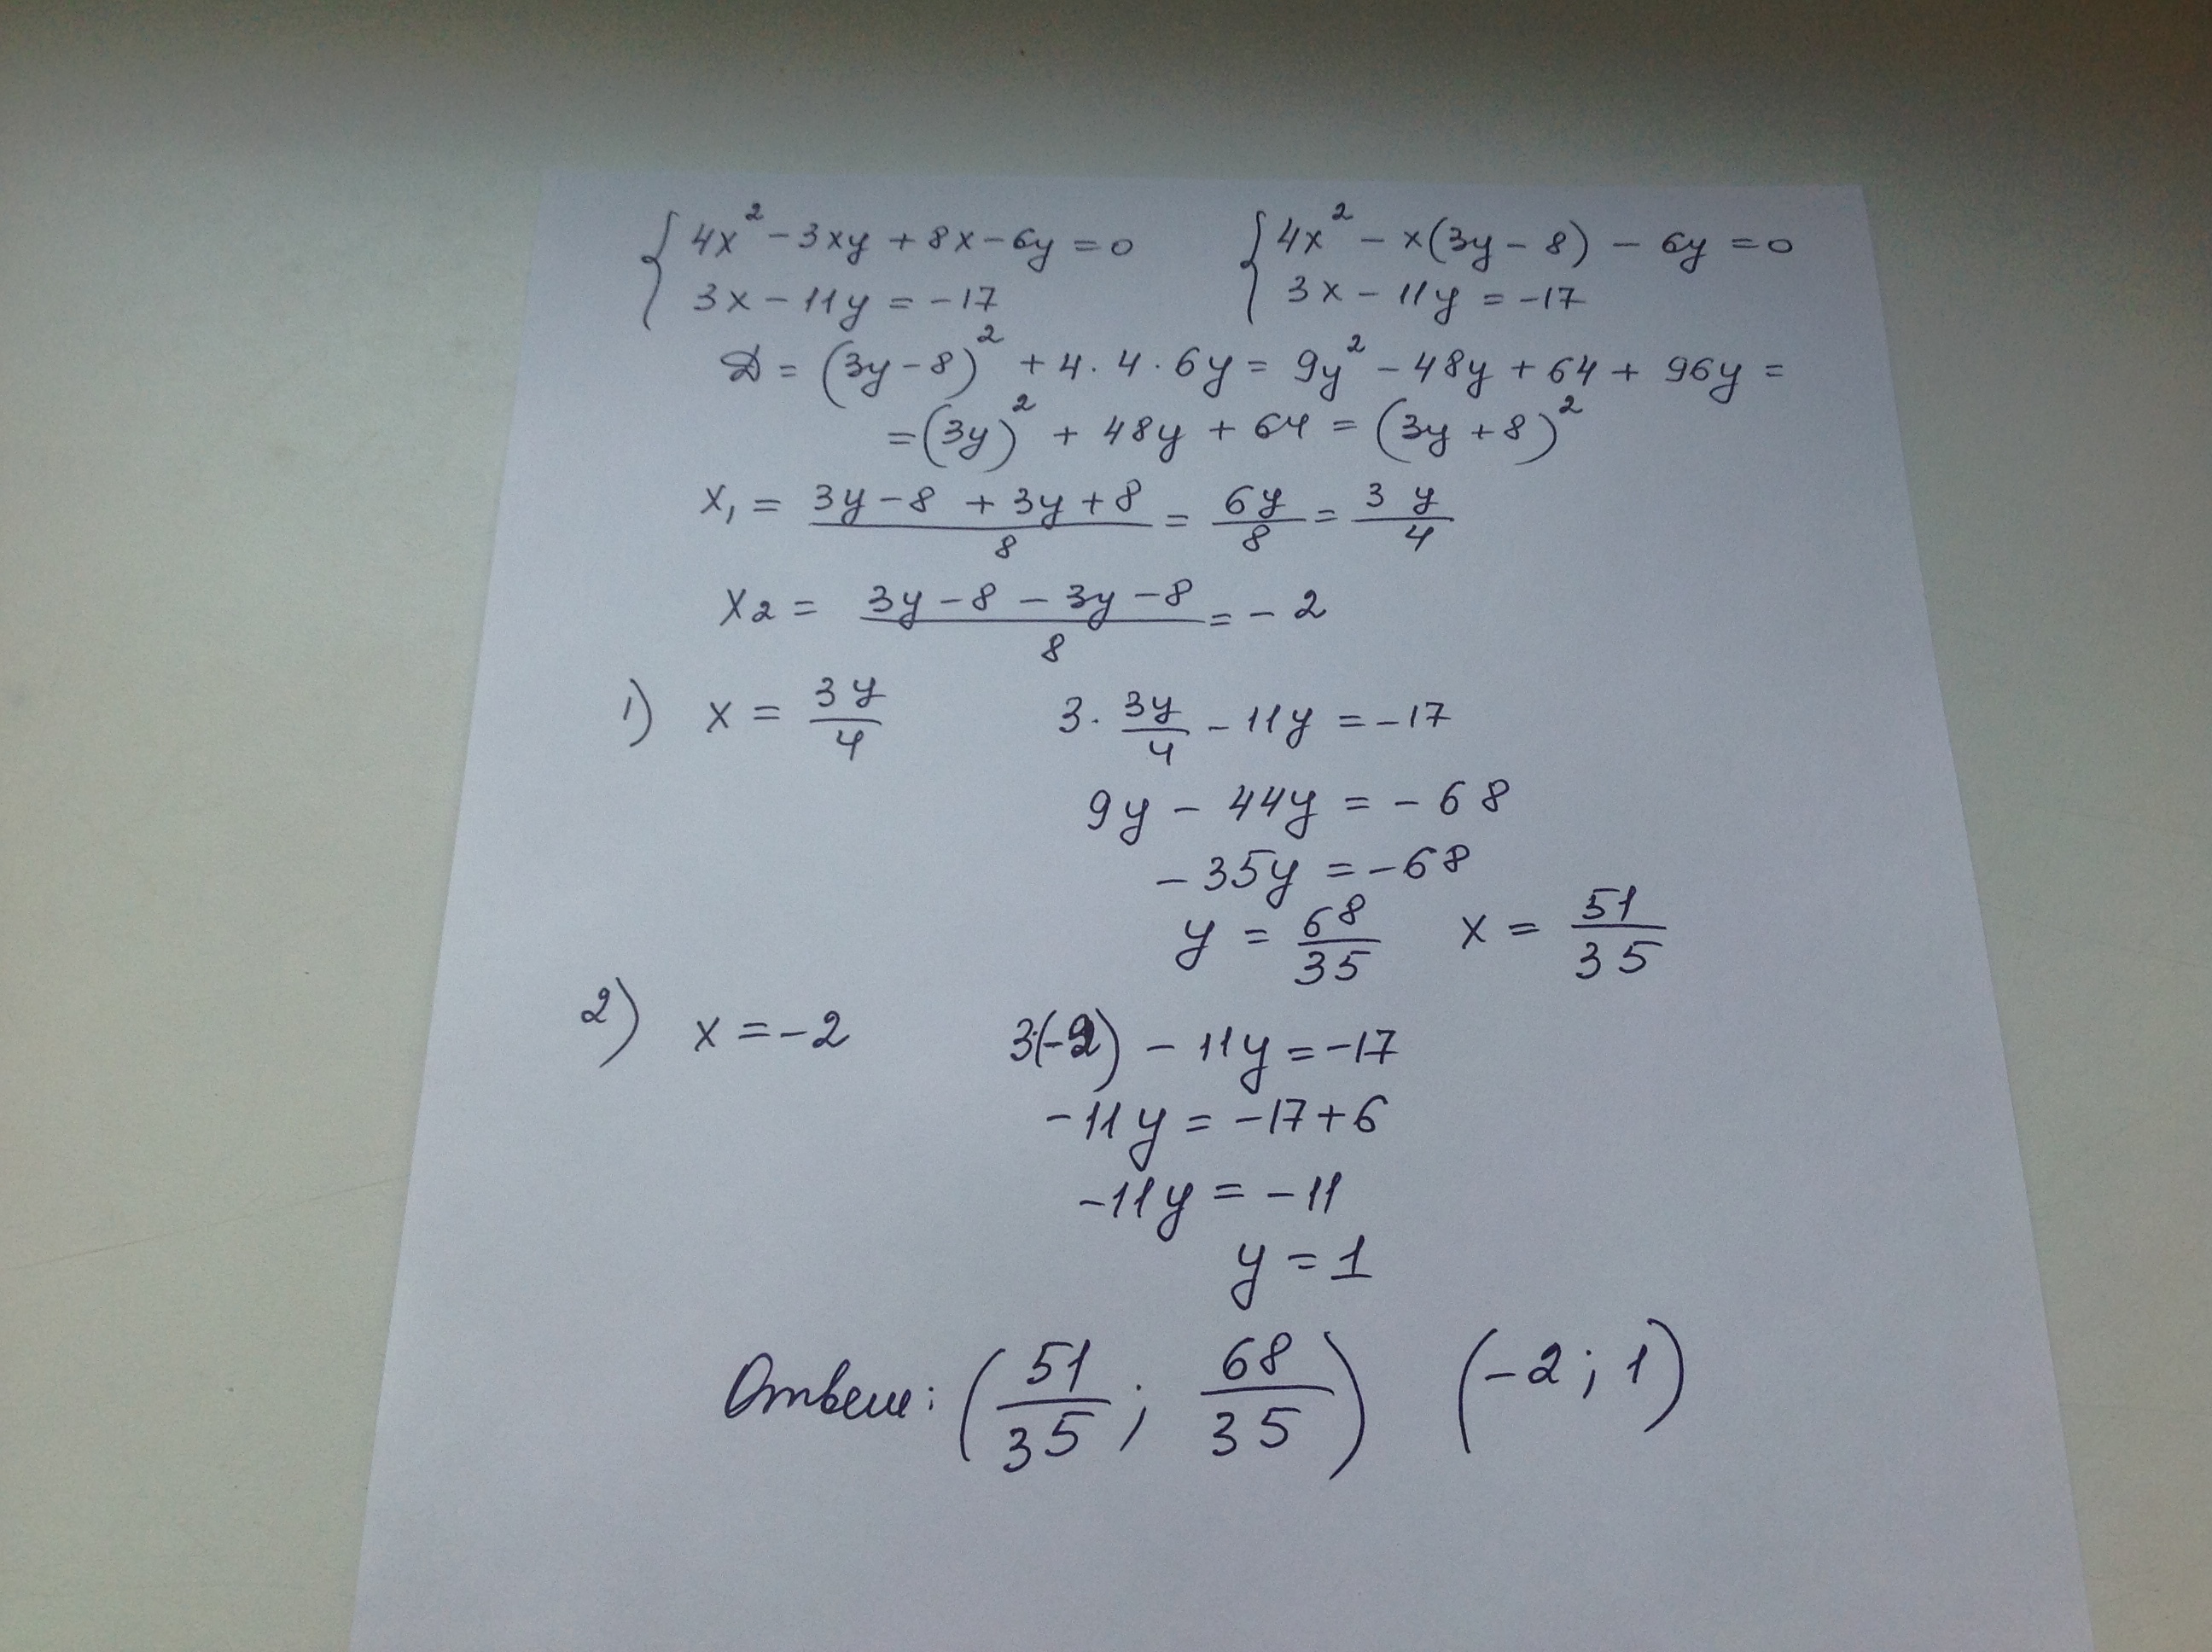 { 4x² - 3xy + 8x - 6y = 0    { 4x² - x(3y - 8) - 6y = 0
3x - 11y = -17    3x - 11y = -17
D = (3y - 8)² + 4 · 4 · 6y = 9y² - 48y + 64 + 96y =
= (3y)² + 48y + 64 = (3y + 8)²
x₁ = (3y - 8 + 3y + 8)/8 = 6y/8 = 3y/4
x₂ = (3y - 8 - 3y - 8)/8 = - 2
1) x = 3y/4    3 · 3y/4 - 11y = -17
9y - 44y = - 68
- 35y = - 68
y = 68/35    x = 51/35
2) x = -2    3·(-2) - 11y = -17
-11y = -17 + 6
-11y = -11
y = 1
Ответ: (51/35; 68/35)    (-2; 1)